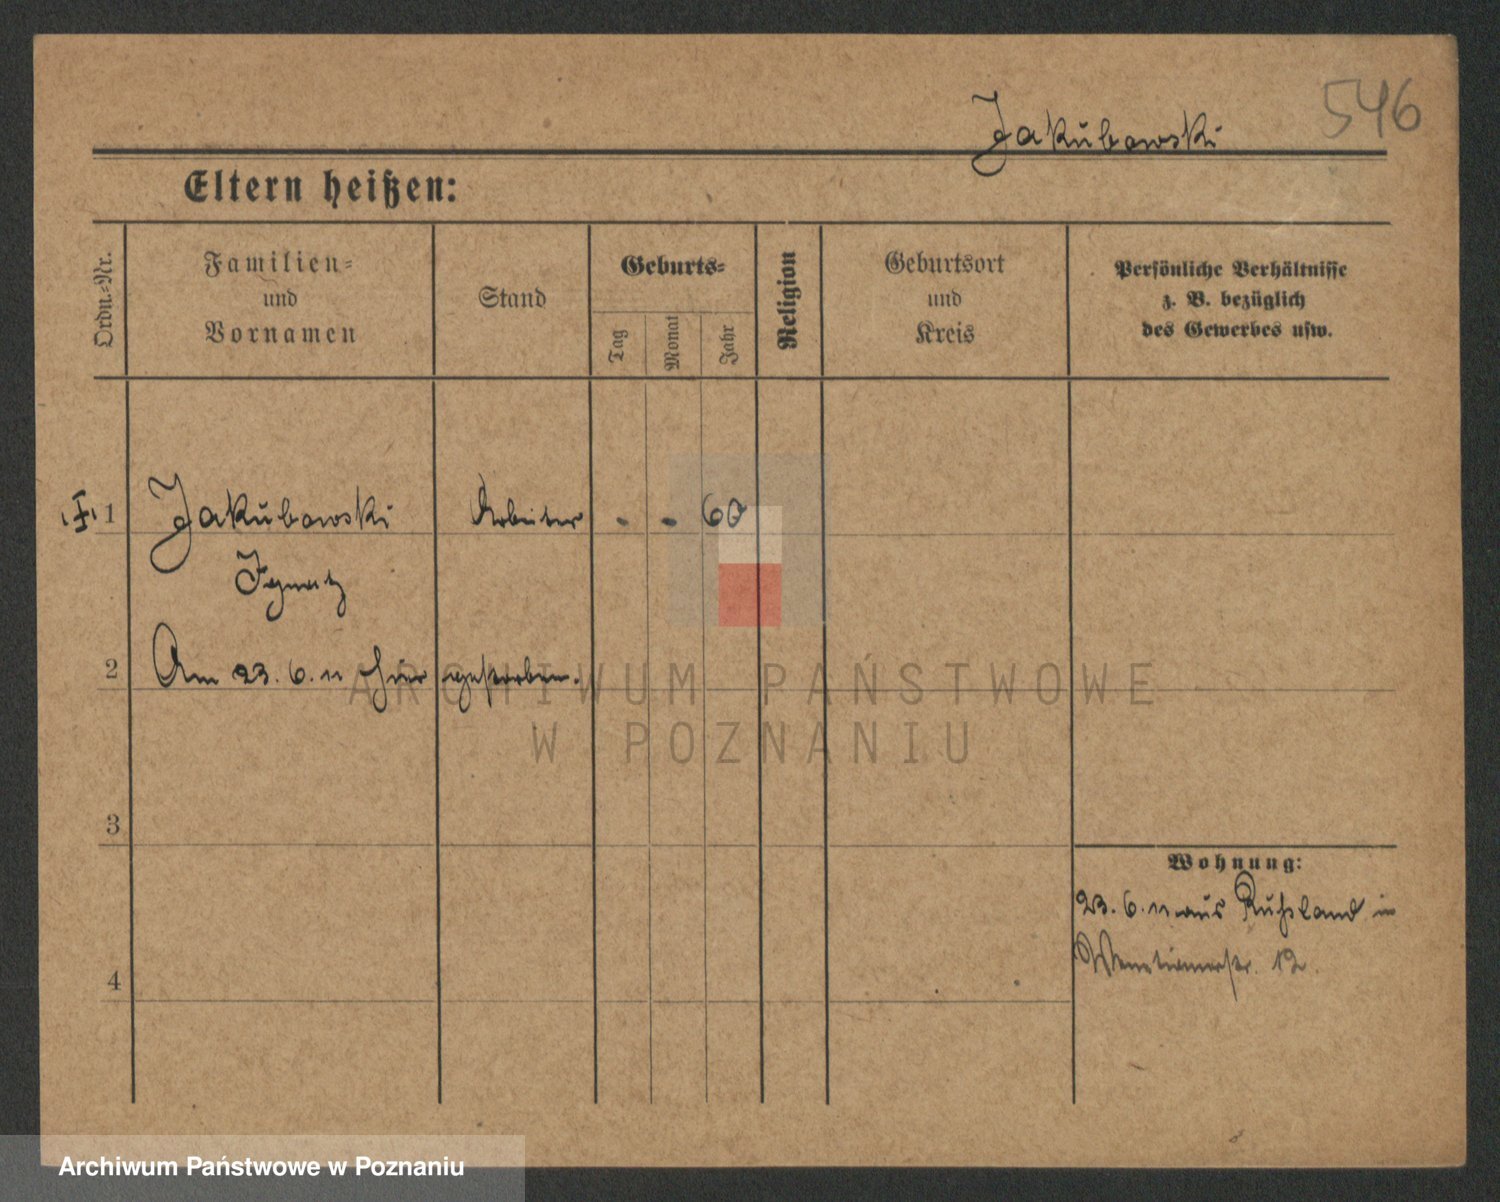 546
Jakubowski
Eltern heißen:
Ordn.-Nr.
Familien-
und
Vornamen
Stand
Geburts-
Tag
Monat
Jahr
Religion
Geburtsort
und
Kreis
Persönliche Verhältnisse
z. B. bezüglich
des Gewerbes usw.
1 Jakubowski Arbeiter - - 60
Ignatz
2 Am 23. 6. 11 hier gestorben.
3
4
Wohnung:
23. 6. 11 aus Rußland in
12.
ARCHIWUM PAŃSTWOWE
W POZNANIU
Archiwum Państwowe w Poznaniu